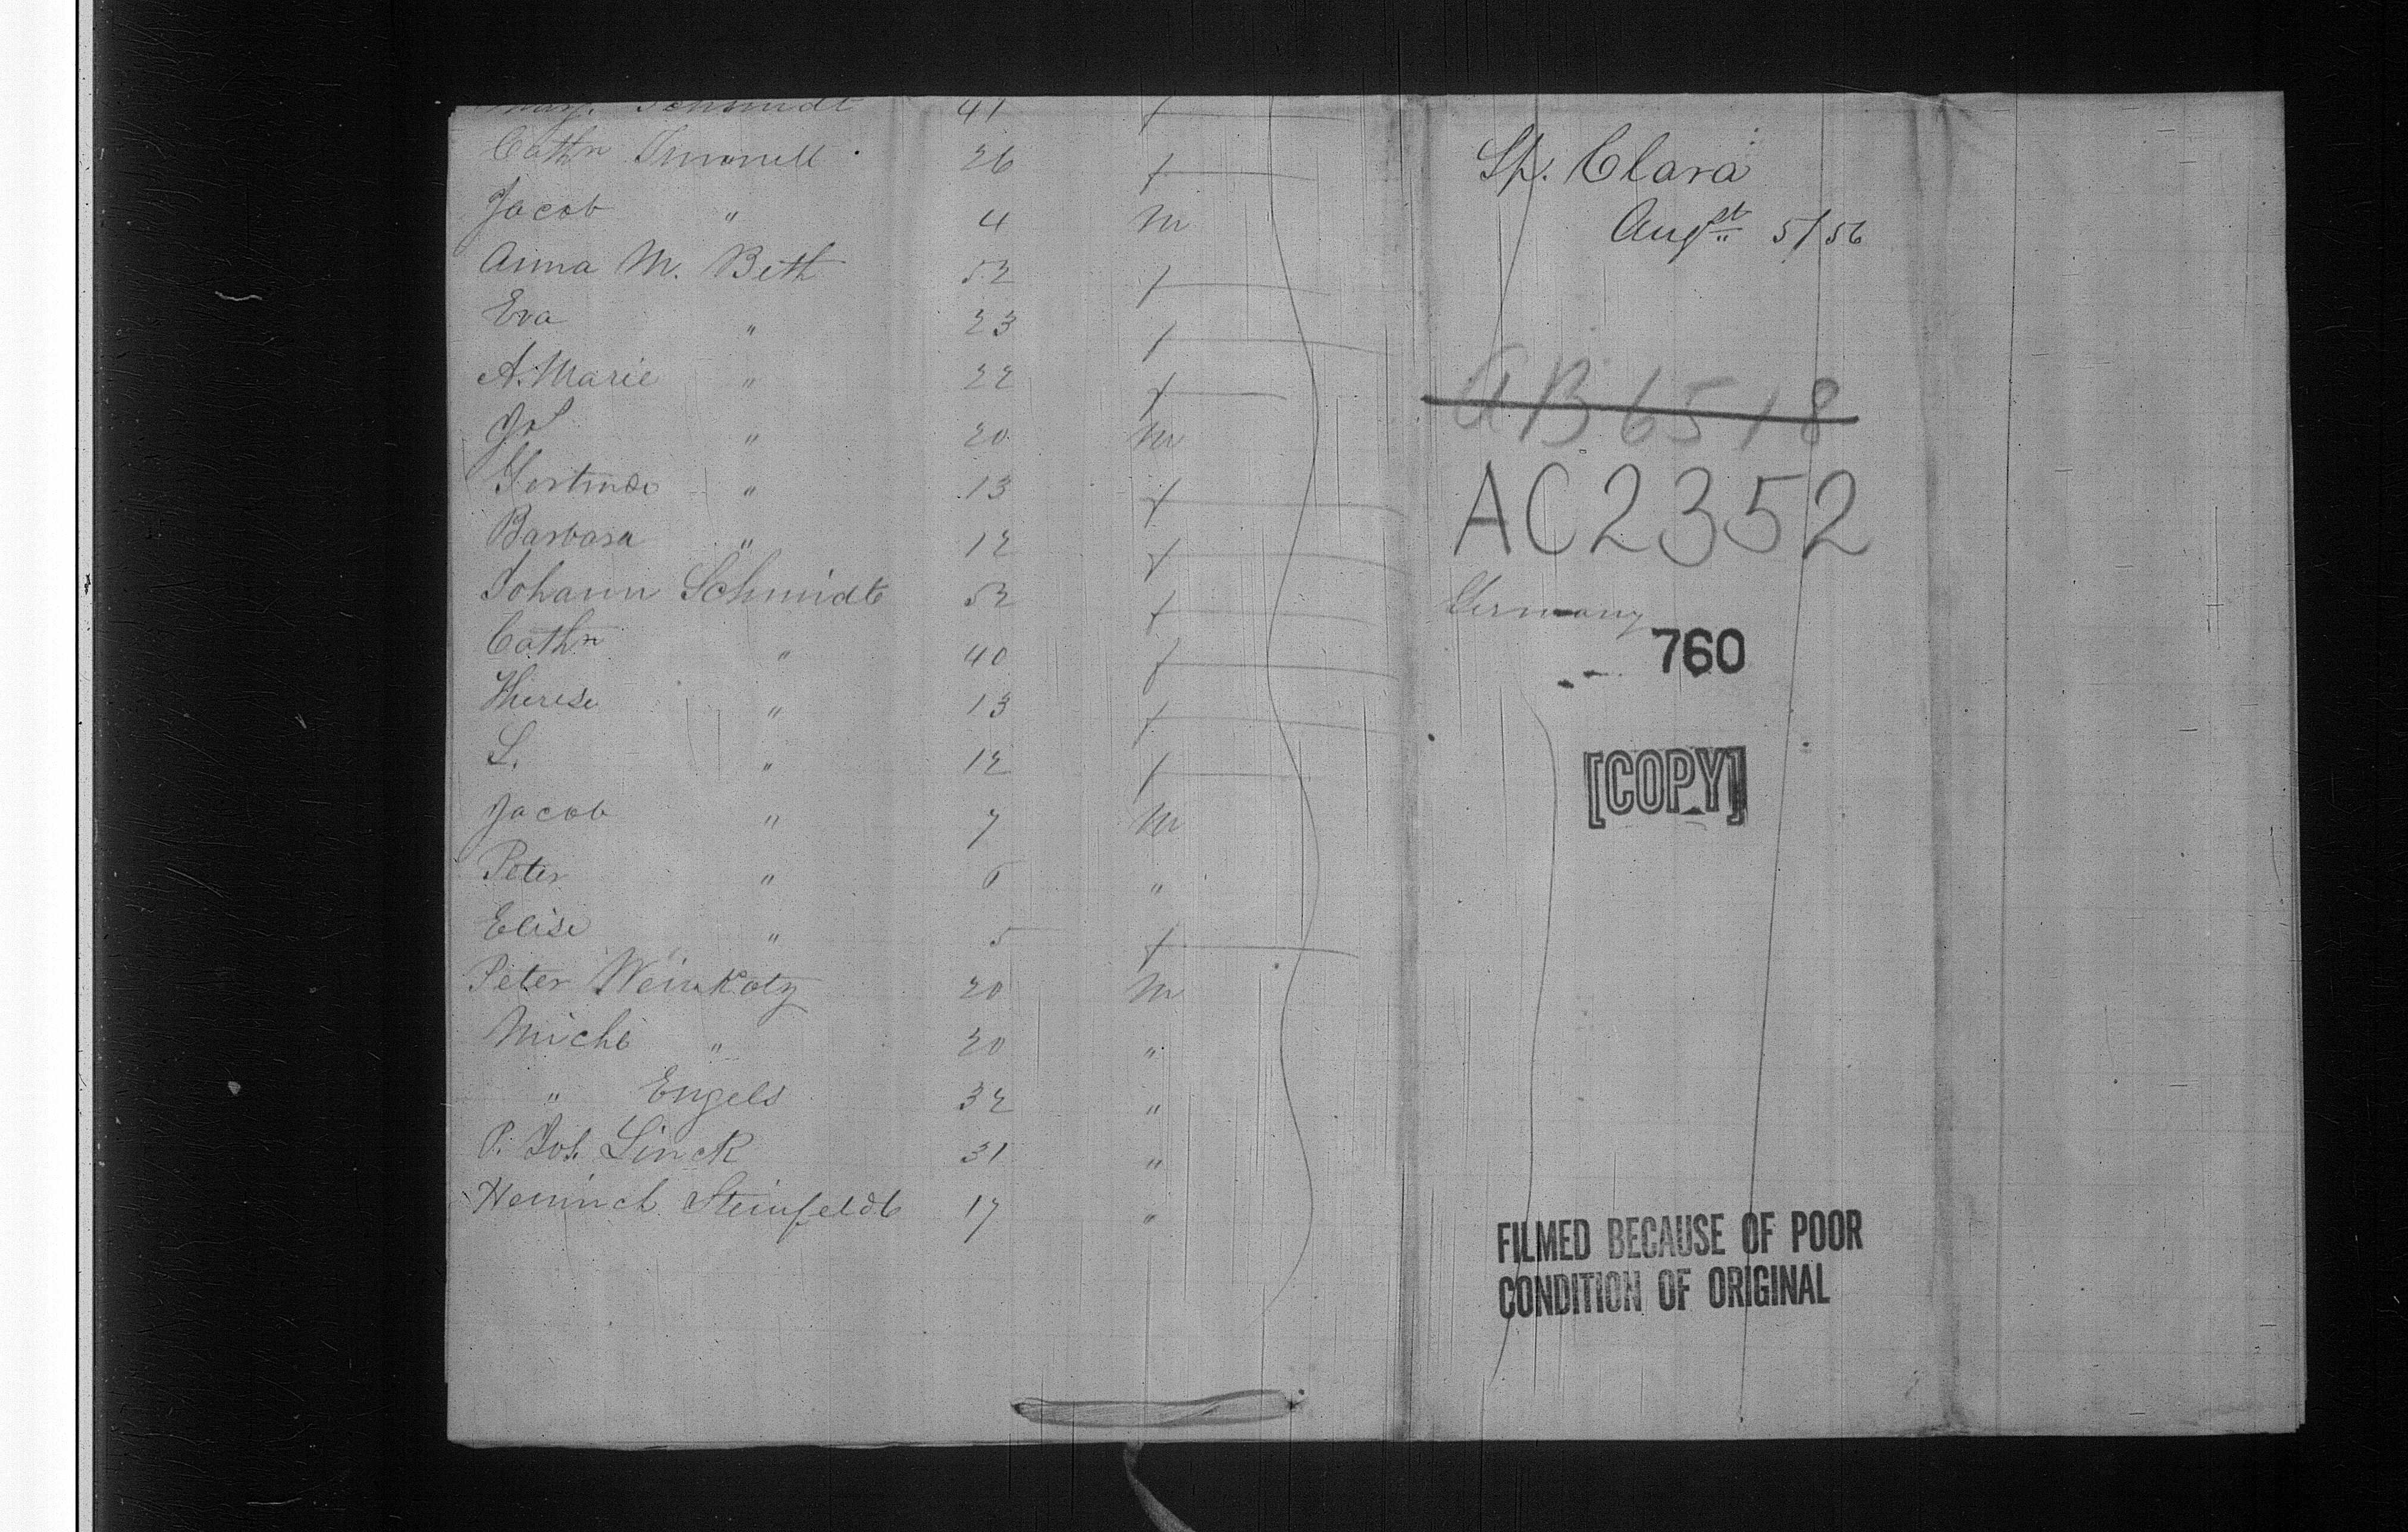 Schmidt 41 f
Cathn 26 f
Jacob " 4 m
Anna M. Beth 52 f
Eva " 23 f
A. Marie " 22 f
" 20 m
Gertrude " 13 f
Barbara " 12 f
Johann Schmidt 52 f
Cathn " 40 f
Therese " 13 f
S. " 12 f
Jacob " 7 m
Peter " 6 "
Elise " 5 f
Peter Weinkotz 20 m
Michl " 20 "
" Engels 32 "
P. Jos. Linck 31 "
Heinrich Steinfeldt 17 "
Sp. Clara
Augst 5/56
AB6518
AC2352
Germany
760
[COPY]
FILMED BECAUSE OF POOR
CONDITION OF ORIGINAL